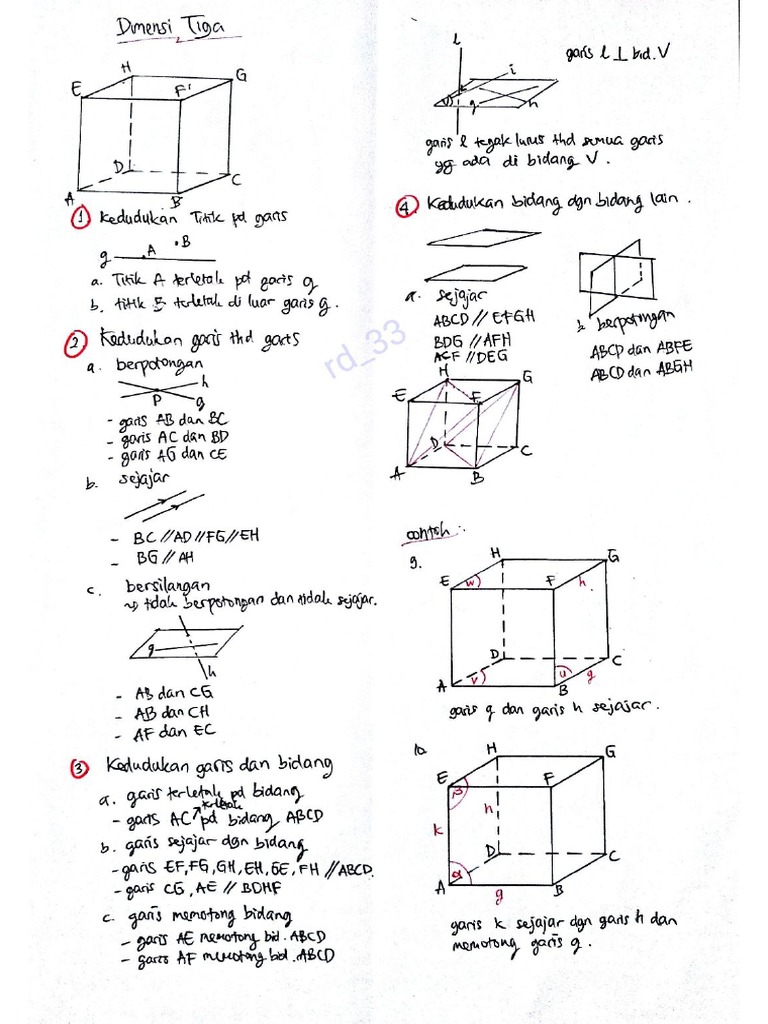 Dimensi Tiga
H
G
E
F'
D
C
A
B
1 Kedudukan Titik pd garis
g A B
a. Titik A terletak pd garis g
b. titik B terletak di luar garis g.
2 Kedudukan garis thd garis
a. berpotongan
h
P
g
- garis AB dan BC
- garis AC dan BD
- garis AG dan CE
b. sejajar
- BC // AD // FG // EH
- BG // AH
c. bersilangan
↝ tidak berpotongan dan tidak sejajar.
g
h
- AB dan CG
- AB dan CH
- AF dan EC
3 Kedudukan garis dan bidang
a. garis terletak pd bidang
terletak
- garis AC ↗ pd bidang ABCD
b. garis sejajar dgn bidang
- garis EF, FG, GH, EH, GE, FH // ABCD.
- garis CG, AE // BDHF
c. garis memotong bidang
- garis AE memotong bid. ABCD
- garis AF memotong bid. ABCD
l
garis l ⊥ bid. V
i
V
g
h
garis l tegak lurus thd semua garis
yg ada di bidang V.
4 Kedudukan bidang dgn bidang lain.
a. sejajar
ABCD // EFGH
BDG // AFH
ACF // DEG
b. berpotongan
ABCD dan ABFE
ABCD dan ABGH
H
G
E
F
D
C
A
B
rd_33
contoh :
9.
H
G
E
w
F
h
D
C
A
v
u
B
g
garis g dan garis h sejajar.
10.
H
G
E
β
F
k
h
D
C
A
α
B
g
garis k sejajar dgn garis h dan
memotong garis g.